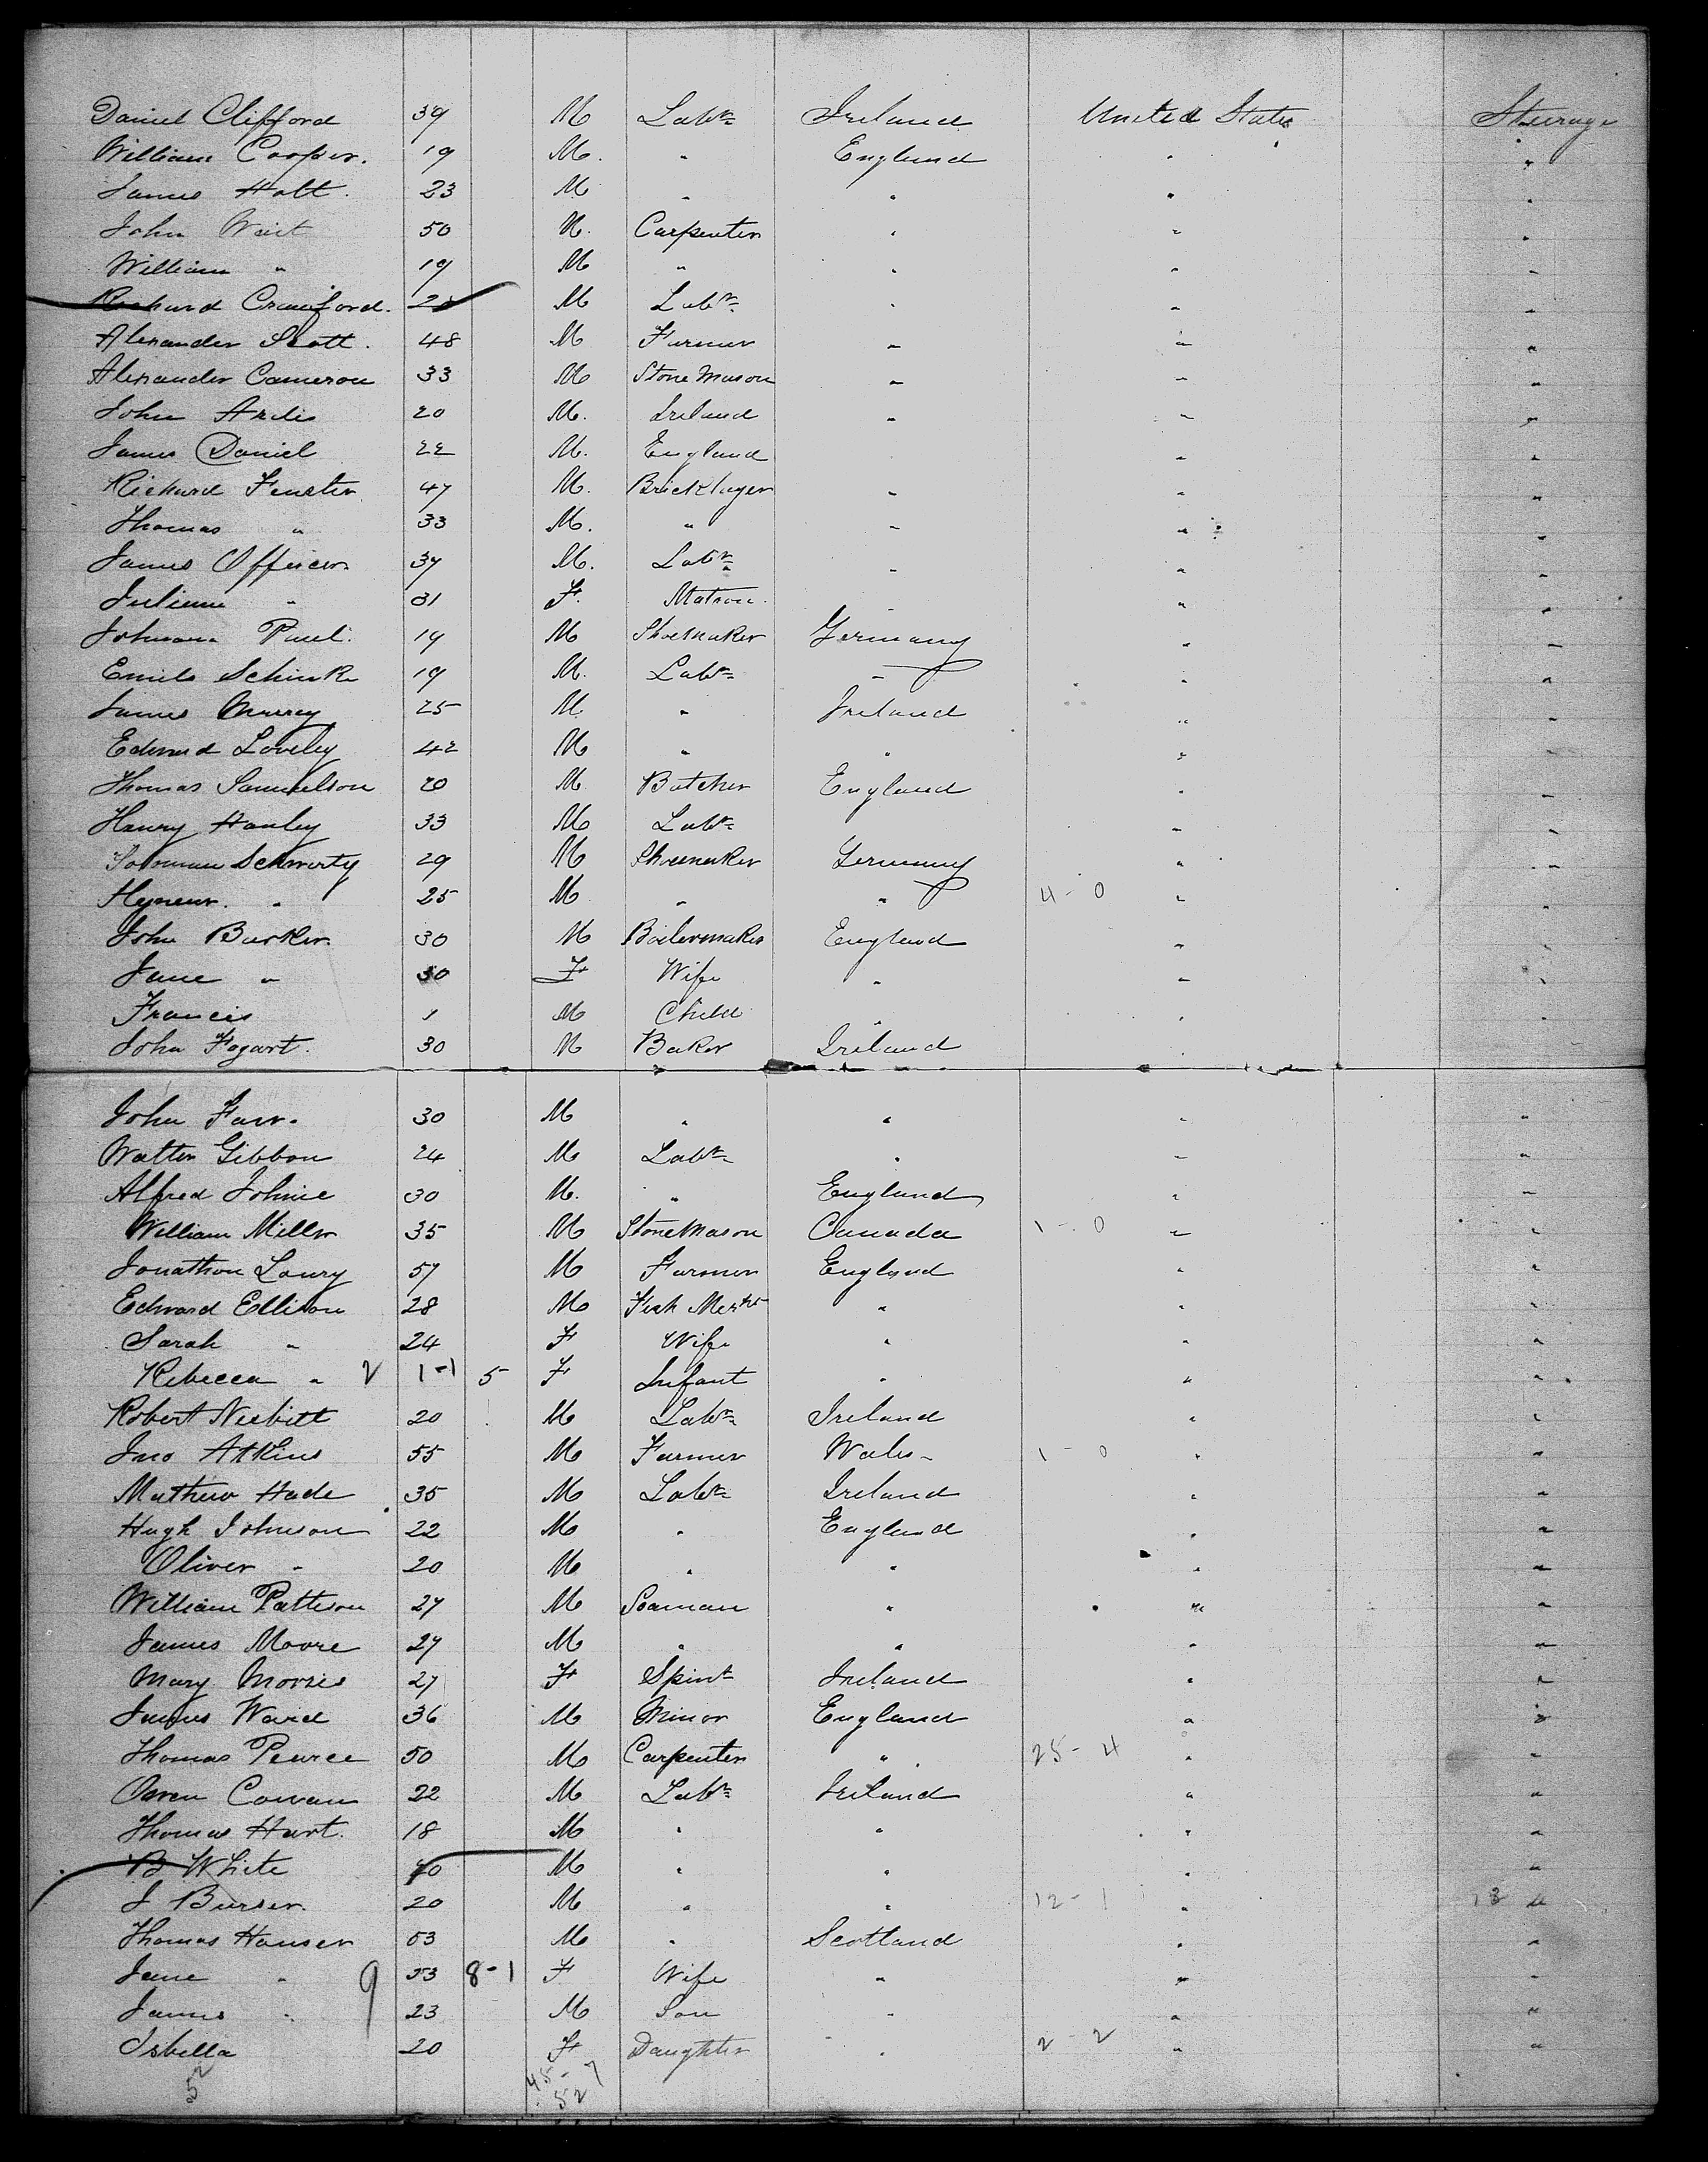 Daniel Clifford 39 M Labr Ireland United States Steerage
William Cooper. 19 M. " England " "
James Holt. 23 M " " " "
John Wait 50 M. Carpenter " " "
William " 19 M " " " "
Richard Crawford. M Labr " " "
Alexander Scott. 48 M Farmer " " "
Alexander Cameron 33 M Stone Mason " " "
John 20 M. Ireland " " "
James Daniel 22 M. England " "
Richard Fenster 47 M. Bricklayer " " "
Thomas " 33 M. " " " "
James Officer. 37 M. Labr " " "
" 31 F. Matron. " " "
Johann Paul. 19 M Shoemaker Germany " "
Emile Schinke 19 M. Labr " " "
James Murray 25 M " Ireland " "
Edward Loveley 42 M " " " "
Thomas Samuelson 20 M Butcher England " "
Henry Hanley 33 M Labr " "
Soloman Schwerty 29 M Shoemaker Germany " "
" 25 M " " 4 - 0 " "
John Barker 30 M Boilermaker England " "
Jane " 30 F Wife " " "
Francis 1 M Child " " "
John Fogart. 30 M Baker Ireland "
John Farr. 30 M " " " "
Walter Gibbon 24 M Labr " " "
Alfred Johnie 30 M. " England " "
William Miller 35 M Stone Mason Canada 1 - 0 " "
Jonathon Lowry 57 M Farmer England " "
Edward Ellison 28 M Fish Mercht " " "
Sarah " 24 F Wife " " "
Rebecca " 2 1-1 5 F Infant " " "
Robert Nesbitt 20 M Labr Ireland " "
Jno Atkins 55 M Farmer Wales 1 - 0 " "
Mathew Hade 35 M Labr Ireland " "
Hugh Johnson 22 M " England " "
Oliver " 20 M " " " "
William Pattison 27 M Seaman " " "
James Moore 27 M " " " "
Mary Morris 27 F Spinr Ireland " "
James Ward 36 M Minor England " "
Thomas Pearce 50 M Carpenter " 25 - 4 " "
Owen Cowan 22 M Labr Ireland " "
Thomas Hart. 18 M " " " "
B White M " " " "
J Burser. 20 M " " 12 - 1 " 13 "
Thomas Hanser 53 M " Scotland " "
Jane " 9 53 8-1 F Wife " " "
James " 23 M Son " " "
Isbella 20 F Daughter " 2 - 2 " "
52 45 - 7
52